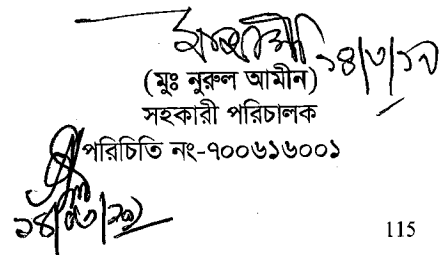 ১৪/৩/১৯
(মুঃ নুরুল আমীন)
সহকারী পরিচালক
পরিচিতি নং-৭০০৬১৬০০১
115